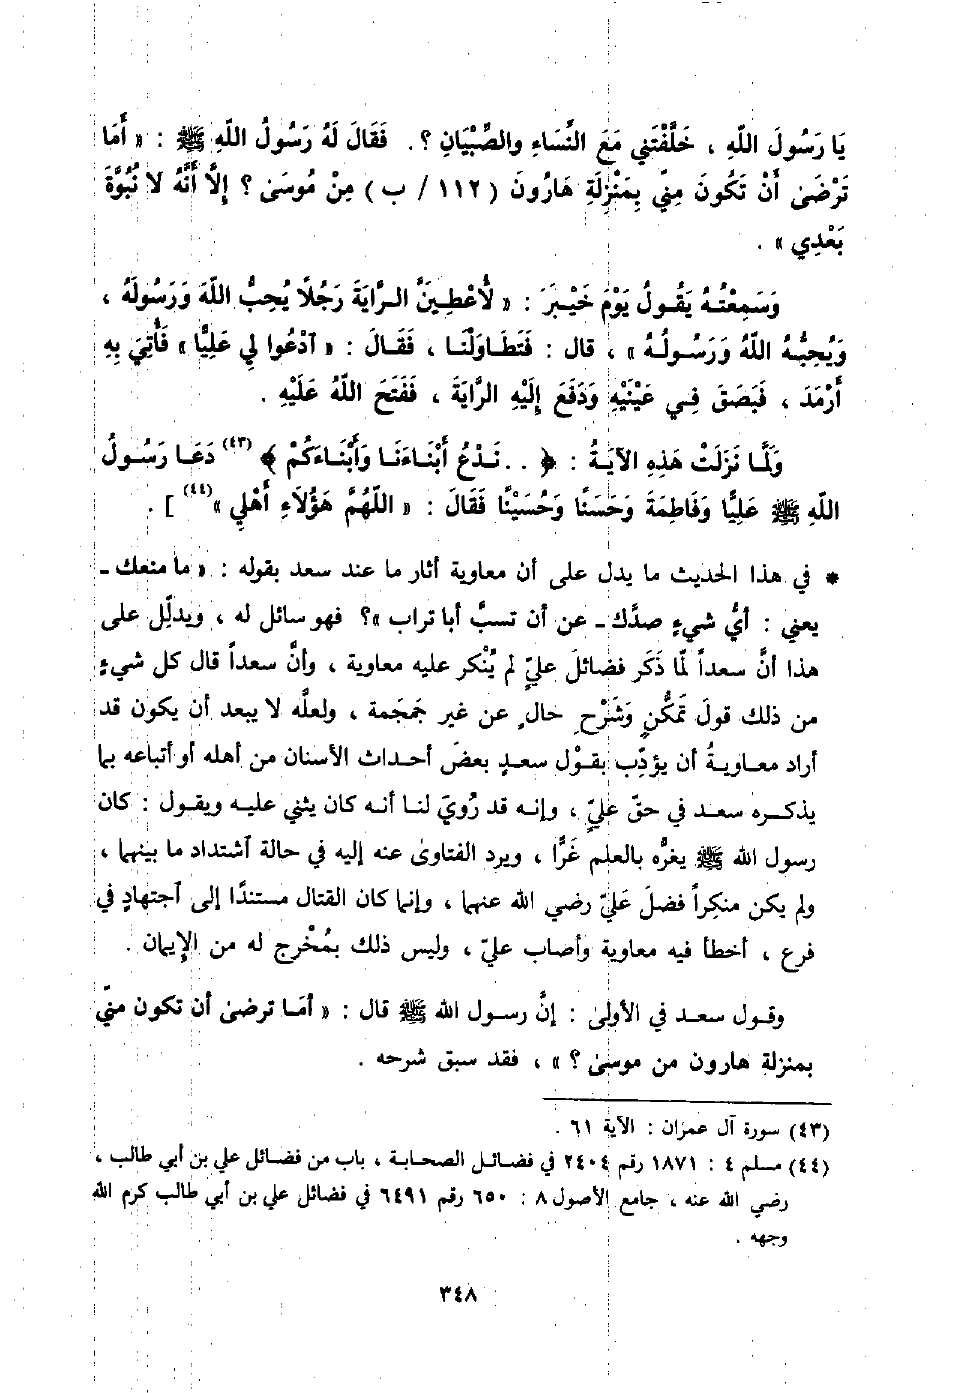 يَا رَسُولَ اللّهِ ، خَلَّفْتَنِي مَعَ النِّسَاءِ والصِّبْيَانِ ؟. فَقَالَ لَهُ رَسُولُ اللّهِ ﷺ : « أَمَا
تَرْضَىٰ أَنْ تَكُونَ مِنِّي بِمَنْزِلَةِ هَارُونَ ( ١١٢ / ب ) مِنْ مُوسَىٰ ؟ إِلَّا أَنَّهُ لَا نُبُوَّةَ
بَعْدِي » .
وَسَمِعْتُـهُ يَقُـولُ يَوْمَ خَيْـبَرَ : « لَأُعْطِـيَنَّ الـرَّايَةَ رَجُلًا يُحِبُّ اللّهَ وَرَسُولَهُ ،
وَيُحِبُّـهُ اللّهُ وَرَسُـولُـهُ » ، قال : فَتَطَـاوَلْنَـا ، فَقَـالَ : « آدْعُوا لِي عَلِيًّا » فَأُتِيَ بِهِ
أَرْمَدَ ، فَبَصَقَ فِـي عَيْنَيْهِ وَدَفَعَ إِلَيْهِ الرَّايَةَ ، فَفَتَحَ اللّهُ عَلَيْهِ .
وَلَمَّـا نَزَلَتْ هَذِهِ الآيَـةُ : ﴿ . . نَـدْعُ أَبْنَـاءَنَـا وَأَبْنَـاءَكُمْ ﴾ (٤٣) دَعَـا رَسُـولُ
اللّهِ ﷺ عَلِيًّا وَفَاطِمَةَ وَحَسَنًا وَحُسَيْنًا فَقَالَ : « اللّهُمَّ هَؤُلَاءِ أَهْلِي » (٤٤) ] .
* في هذا الحديث ما يدل على أن معاوية أثار ما عند سعد بقوله : « ما منعك ـ
يعني : أيُّ شيءٍ صدَّك ـ عن أن تسبَّ أبا تراب »؟ فهو سائل له ، ويدلِّل على
هذا أنَّ سعداً لمّا ذَكَر فضائلَ عليٍّ لم يُنْكر عليه معاوية ، وأنَّ سعداً قال كل شيءٍ
من ذلك قولَ تَمَكُّنٍ وَشَرْحِ حالٍ عن غير جَمْجَمة ، ولعلَّه لا يبعد أن يكون قد
أراد معـاويـةُ أن يؤدِّب بقَوْل سعـدٍ بعضَ أحـداث الأسنان من أهله أو أتباعه بما
يذكـره سعد في حقّ عليٍّ ، وإنـه قد رُويَ لنـا أنـه كان يثني عليـه ويقـول : كان
رسول الله ﷺ يغرُّه بالعلم غَرًّا ، ويرد الفتاوىٰ عنه إليه في حالة آشتداد ما بينهما ،
ولم يكن منكِراً فضلَ عَليّ رضي الله عنهما ، وإنما كان القتال مستندًا إلى آجتهادٍ في
فرع ، أخطأ فيه معاوية وأصاب عليّ ، وليس ذلك بمُخْرج له من الإيمان .
وقـول سعـد في الأولىٰ : إنَّ رسـول الله ﷺ قال : « أمَـا ترضىٰ أن تكون منّي
بمنزلة هارون من موسىٰ ؟ » ، فقد سبق شرحه .
(٤٣) سورة آل عمران : الآية ٦١ .
(٤٤) مسلم ٤ : ١٨٧١ رقم ٢٤٠٤ في فضائـل الصحابـة ، باب من فضائل علي بن أبي طالب ،
رضي الله عنه ، جامع الأصول ٨ : ٦٥٠ رقم ٦٤٩١ في فضائل علي بن أبي طالب كرم الله
وجهه .
٣٤٨